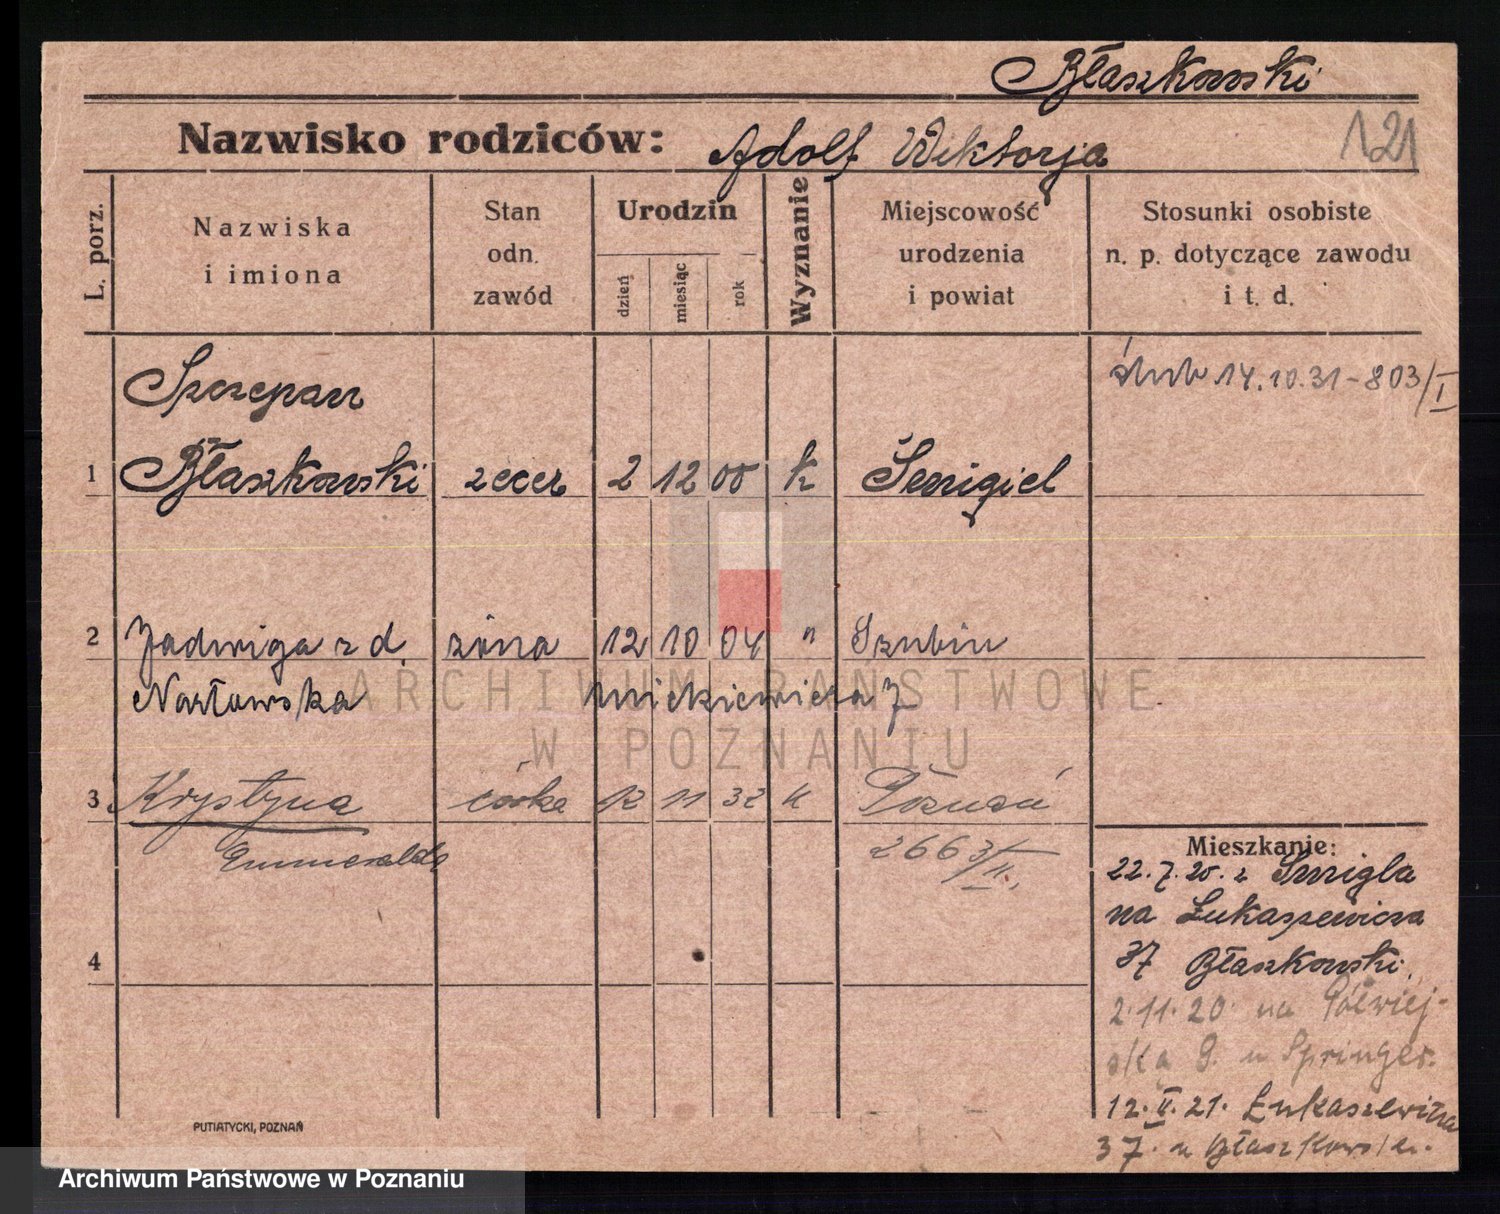 Błaszkowski
Nazwisko rodziców: Adolf Wiktorja
121
L. porz.
Nazwiska
i imiona
Stan
odn.
zawód
Urodzin
dzień
miesiąc
rok
Wyznanie
Miejscowość
urodzenia
i powiat
Stosunki osobiste
n. p. dotyczące zawodu
i t. d.
ślub 14.10.31-803/I
Szczepan
1 Błaszkowski zecer 2 12 00 k Śmigiel
2 Jadwiga z d. żona 12 10 04 " Szubin
Mickiewicza 7
3 Krystyna córka 12 11 32 k Poznań
2663/II.
4
Mieszkanie:
22.7.20. z Śmigla
na Łukaszewicza
37 Błaszkowski.
2.11.20 na Półwiej-
ską 9. u Springer.
12.II.21. Łukaszewicza
37. u Błaszkowski.
PUTIATYCKI, POZNAŃ
ARCHIWUM PAŃSTWOWE
W POZNANIU
Archiwum Państwowe w Poznaniu